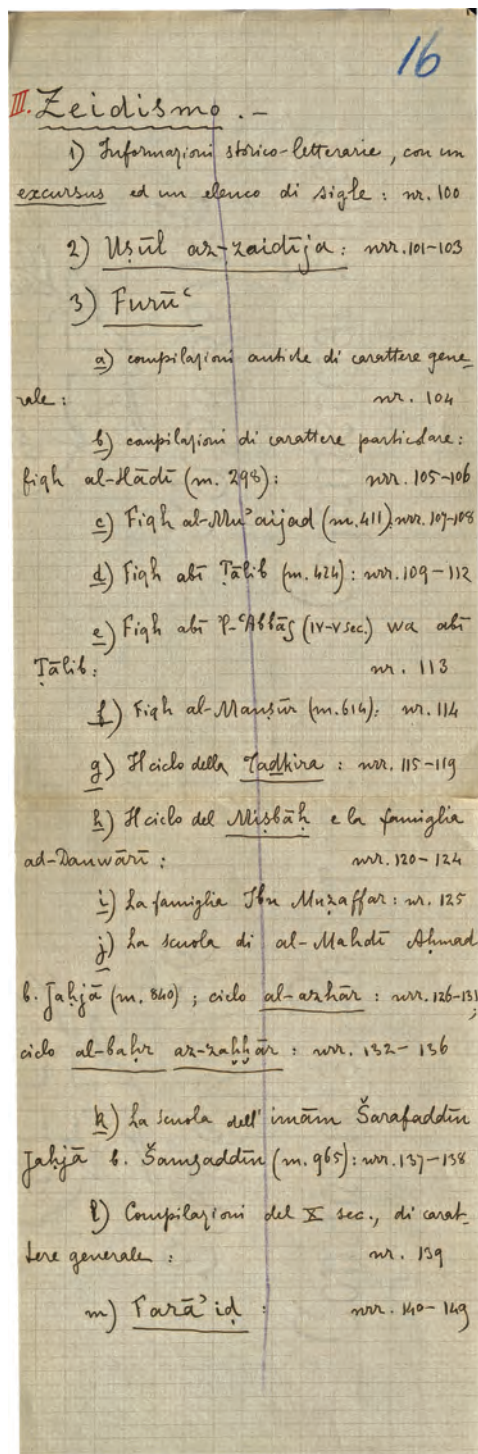 16
III. Zeidismo. –
1) Informazioni storico-letterarie, con un
excursus ed un elenco di sigle: nr. 100
2) Uṣūl az-zaidīja: nrr. 101-103
3) Furūʿ
a) compilazioni antiche di carattere gene-
rale: nr. 104
b) compilazioni di carattere particolare:
fiqh al-Hādī (m. 298): nrr. 105-106
c) Fiqh al-Muʾaijad (m. 411): nrr. 107-108
d) Fiqh abī Ṭālib (m. 424): nrr. 109-112
e) Fiqh abī 'l-ʿAbbās (IV-V sec.) wa abī
Ṭālib: nr. 113
f) Fiqh al-Manṣūr (m. 614): nr. 114
g) Il ciclo della Taḏkira: nrr. 115-119
h) Il ciclo del Miṣbāḥ e la famiglia
ad-Dawwārī: nrr. 120-124
i) La famiglia Ibn Muẓaffar: nr. 125
j) La scuola di al-Mahdī Aḥmad
b. Jaḥjā (m. 840); ciclo al-azhār: nrr. 126-131;
ciclo al-baḥr az-zaḫḫār: nrr. 132-136
k) La scuola dell'imām Šarafaddīn
Jaḥjā b. Šamsaddīn (m. 965): nrr. 137-138
l) Compilazioni del X sec., di carat-
tere generale: nr. 139
m) Farāʾiḍ: nrr. 140-149